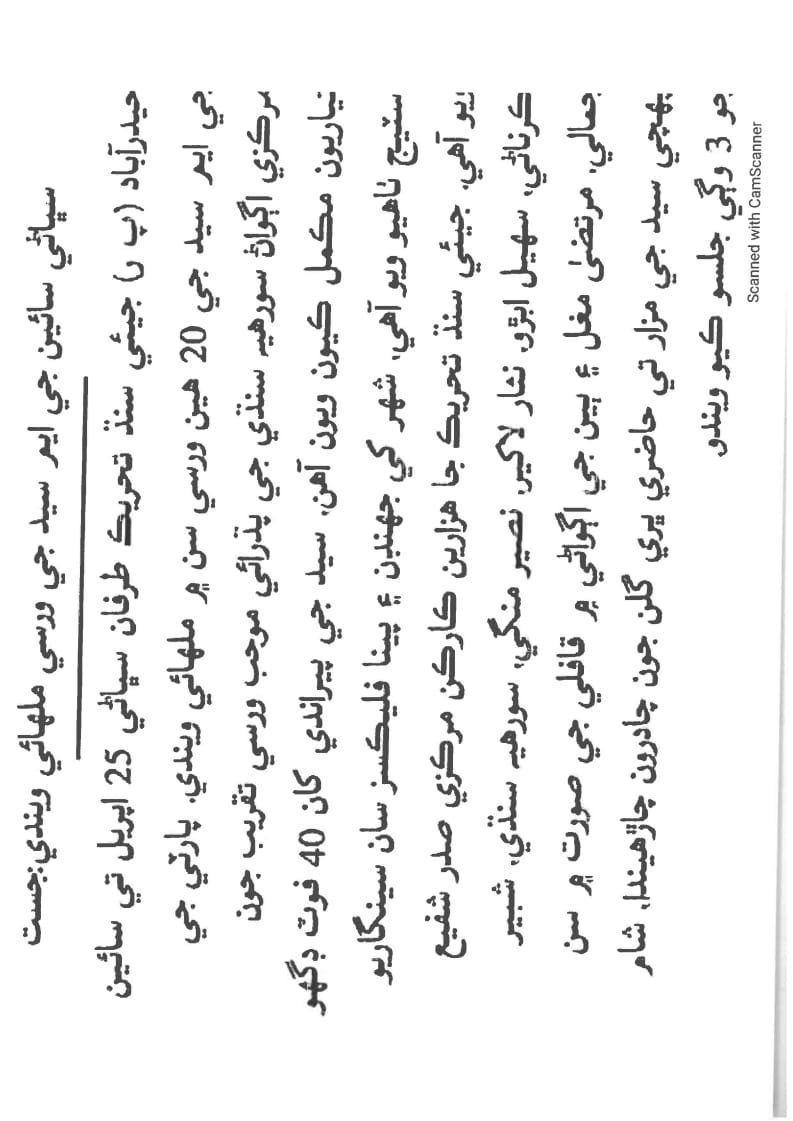 سڀاڻي سائين جي ايم سيد جي ورسي ملهائي ويندي:جست
حيدرآباد (پ ر) جيئي سنڌ تحريڪ طرفان سڀاڻي 25 اپريل تي سائين
جي ايم سيد جي 20 هين ورسي سن ۾ ملهائي ويندي. پارٽي جي
مرڪزي اڳواڻ سورهيہ سنڌي جي پڌرائي موجب ورسي تقريب جون
تياريون مڪمل ڪيون ويون آهن، سيد جي پيراندي کان 40 فوٽ ڊگهو
سٽيج ٺاهيو ويو آهي، شهر کي جهنڊن ۽ پينا فليڪسز سان سينگاريو
ويو آهي. جيئي سنڌ تحريڪ جا هزارين ڪارڪن مرڪزي صدر شفيع
ڪرناڻي، سهيل ابڙو، نثار لاکير، نصير منگي، سورهيہ سنڌي، شبير
جمالي، مرتضيٰ مغل ۽ ٻين جي اڳواڻي ۾ قافلي جي صورت ۾ سن
پهچي سيد جي مزار تي حاضري ڀري گلن جون چادرون چاڙهيندا، شام
جو 3 وڳي جلسو ڪيو ويندو.
Scanned with CamScanner